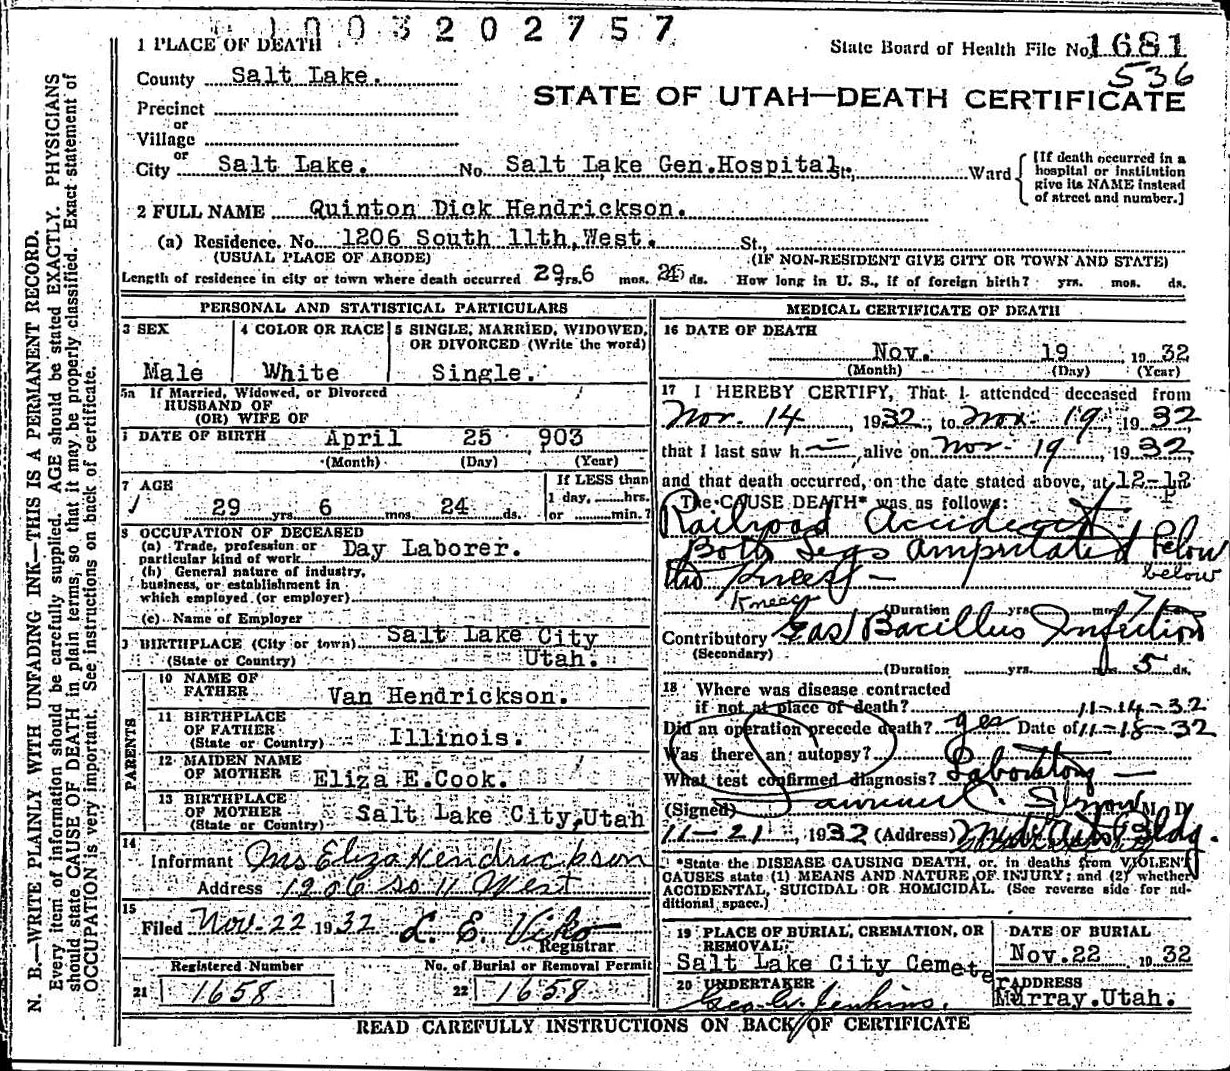 1003202757
1 PLACE OF DEATH
State Board of Health File No. 1681
County Salt Lake.
536
STATE OF UTAH—DEATH CERTIFICATE
Precinct
or
Village
or
City Salt Lake. No. Salt Lake Gen. Hospital St., Ward
[If death occurred in a
hospital or institution
give its NAME instead
of street and number.]
2 FULL NAME Quinton Dick Hendrickson.
(a) Residence. No. 1206 South 11th, West. St.,
(USUAL PLACE OF ABODE) (IF NON-RESIDENT GIVE CITY OR TOWN AND STATE)
Length of residence in city or town where death occurred 29 yrs. 6 mos. ds. How long in U. S., if of foreign birth? yrs. mos. ds.
PERSONAL AND STATISTICAL PARTICULARS
3 SEX
Male
4 COLOR OR RACE
White
5 SINGLE, MARRIED, WIDOWED,
OR DIVORCED (Write the word)
Single.
5a If Married, Widowed, or Divorced
HUSBAND OF
(OR) WIFE OF
DATE OF BIRTH April 25 903
(Month) (Day) (Year)
7 AGE
29 yrs. 6 mos. 24 ds.
If LESS than
1 day, hrs.
or min.?
8 OCCUPATION OF DECEASED
(a) Trade, profession or
particular kind of work Day Laborer.
(b) General nature of industry,
business, or establishment in
which employed (or employer)
(c) Name of Employer
BIRTHPLACE (City or town) Salt Lake City
(State or Country) Utah.
PARENTS
10 NAME OF
FATHER Van Hendrickson.
11 BIRTHPLACE
OF FATHER
(State or Country) Illinois.
12 MAIDEN NAME
OF MOTHER Eliza E. Cook.
13 BIRTHPLACE
OF MOTHER
(State or Country) Salt Lake City, Utah
14
Informant Mrs Eliza Hendrickson
Address 1206 So 11 West
15
Filed Nov. 22 1932 L. E. Viko
Registrar
Registered Number
21 1658
No. of Burial or Removal Permit
22 1658
MEDICAL CERTIFICATE OF DEATH
16 DATE OF DEATH
Nov. 19, 1932
(Month) (Day) (Year)
17 I HEREBY CERTIFY, That I attended deceased from
Nov. 14, 1932, to Nov. 19, 1932
that I last saw h— alive on Nov 19, 1932
and that death occurred, on the date stated above, at 12-12
The CAUSE DEATH* was as follows:
Railroad Accident
Both Legs amputated below
below
the Knees —
Knees
(Duration yrs. mos.
Contributory Gas Bacillus Infection
(Secondary)
(Duration yrs. mos. 5 ds.
18 Where was disease contracted
if not at place of death? 11-14-32
Did an operation precede death? yes Date of 11-18-32
Was there an autopsy?
What test confirmed diagnosis? Laboratory —
(Signed) M. D.
11-21, 1932 (Address) Bldg.
*State the DISEASE CAUSING DEATH, or, in deaths from VIOLENT
CAUSES state (1) MEANS AND NATURE OF INJURY; and (2) whether
ACCIDENTAL, SUICIDAL OR HOMICIDAL. (See reverse side for ad-
ditional space.)
19 PLACE OF BURIAL, CREMATION, OR
REMOVAL:
Salt Lake City Cemetery
DATE OF BURIAL
Nov. 22 1932
20 UNDERTAKER
Geo. W. Jenkins.
ADDRESS
Murray. Utah.
READ CAREFULLY INSTRUCTIONS ON BACK OF CERTIFICATE
N. B.—WRITE PLAINLY WITH UNFADING INK—THIS IS A PERMANENT RECORD.
Every item of information should be carefully supplied. AGE should be stated EXACTLY. PHYSICIANS
should state CAUSE OF DEATH in plain terms, so that it may be properly classified. Exact statement of
OCCUPATION is very important. See instructions on back of certificate.